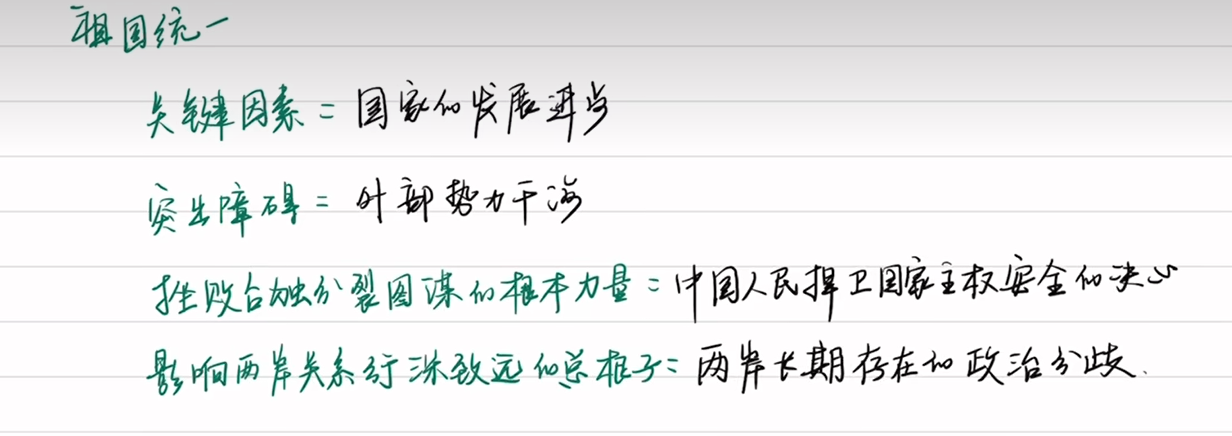 祖国统一
关键因素＝国家的发展进步
突出障碍＝外部势力干涉
挫败台独分裂图谋的根本力量＝中国人民捍卫国家主权安全的决心
影响两岸关系行深致远的总根子＝两岸长期存在的政治分歧.